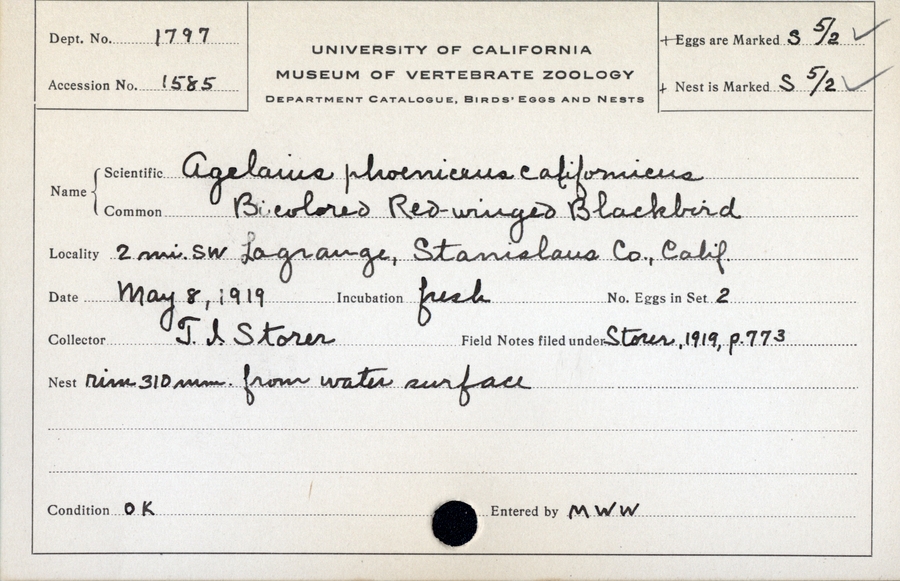 Dept. No. 1797
Accession No. 1585
UNIVERSITY OF CALIFORNIA
MUSEUM OF VERTEBRATE ZOOLOGY
DEPARTMENT CATALOGUE, BIRDS' EGGS AND NESTS
+ Eggs are Marked S 5/2 ✓
+ Nest is Marked S 5/2 ✓
Name
Scientific Agelaius phoeniceus californicus
Common Bicolored Red-winged Blackbird
Locality 2 mi. SW Lagrange, Stanislaus Co., Calif.
Date May 8, 1919 Incubation fresh No. Eggs in Set 2
Collector T. I Storer Field Notes filed under Storer, 1919, p. 773
Nest rim 310 mm. from water surface
Condition OK Entered by MWW